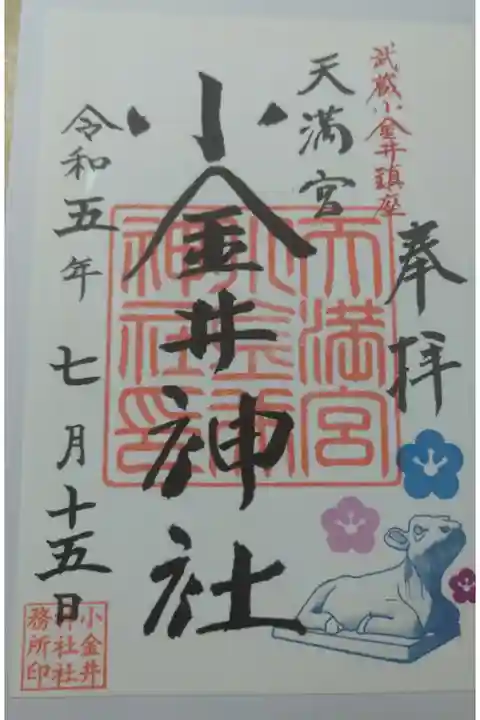 武蔵小金井鎮座
奉拝
天満宮
小金井神社
令和五年七月十五日
天満宮
小金井
神社印
小金井
神社社
務所印